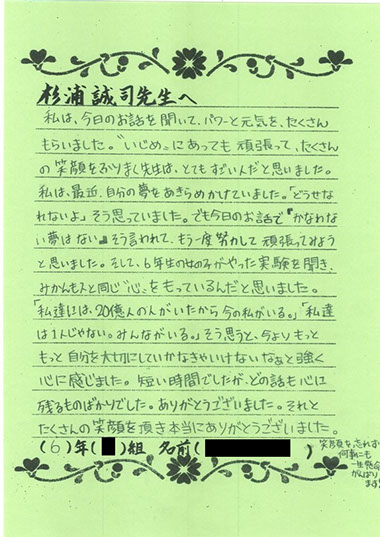 杉浦誠司先生へ
私は、今日のお話を聞いて、パワーと元気を、たくさん
もらいました。"いじめ"にあっても頑張って、たくさん
の笑顔をふりまく先生は、とてもすごいんだと思いました。
私は、最近、自分の夢をあきらめかけていました。「どうせな
れないよ」そう思っていました。でも今日のお話で『かなわな
い夢はない』そう言われて、もう一度努力して頑張ってみよう
と思いました。そして、6年生の女の子がやった実験を聞き、
みかんも人と同じ"心"をもっているんだと思いました。
「私達には、20億人の人がいたから今の私がいる。」「私達
は1人じゃない。みんながいる。」そう思うと、今よりもっと
もっと自分を大切にしていかなきゃいけないなぁと強く
心に感じました。短い時間でしたが、どの話も心に
残るものばかりでした。ありがとうございました。それと
たくさんの笑顔を頂き本当にありがとうございました。
(6)年( )組 名前( )
笑顔を忘れず
何事にも
一生懸命
がんばり
ます!